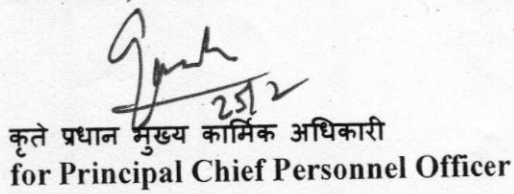 25/2
कृते प्रधान मुख्य कार्मिक अधिकारी
for Principal Chief Personnel Officer